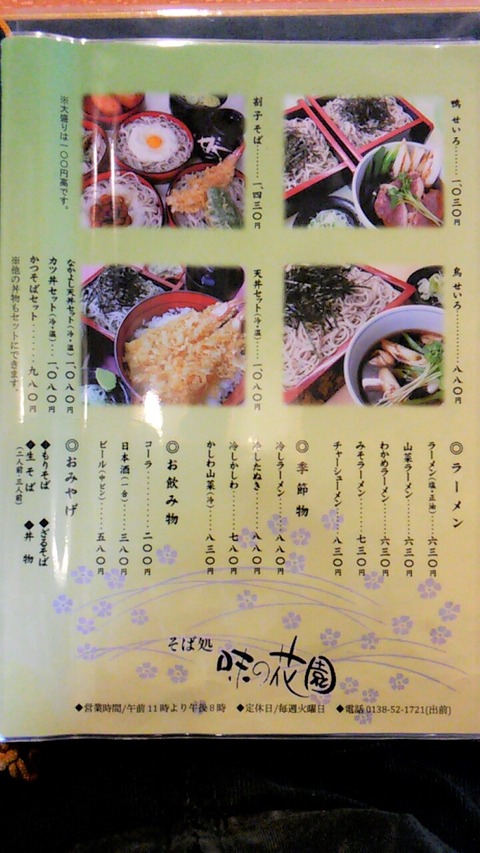 鴨せいろ………一、〇三〇円
割子そば………一、四三〇円
※大盛りは一〇〇円高です。
鳥せいろ………八八〇円
天丼セット(冷・温)一、〇八〇円
なかよし天丼セット(冷・温)一、〇八〇円
カツ丼セット(冷・温)一、〇八〇円
かつそばセット………九八〇円
※他の丼物もセットにできます。
◎ラーメン
ラーメン(塩・正油)……六三〇円
山菜ラーメン……六三〇円
わかめラーメン……六三〇円
みそラーメン……七三〇円
チャーシューメン……八三〇円
◎季節物
冷しラーメン……八八〇円
冷したぬき……八八〇円
冷しかしわ……七八〇円
かしわ山菜(冷)……八三〇円
◎お飲み物
コーラ……二〇〇円
日本酒(一合)……三八〇円
ビール(中ビン)……五八〇円
◎おみやげ
◆もりそば ◆ざるそば
◆生そば ◆丼物
(二人前・三人前)
そば処
味の花園
◆営業時間/午前11時より午後8時 ◆定休日/毎週火曜日 ◆電話 0138-52-1721(出前)